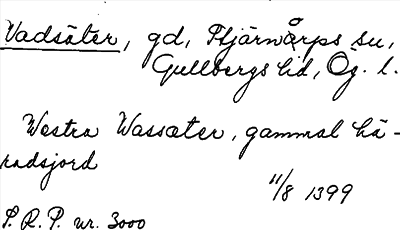 Vadsäter, gd, Stjärnorps sn,
Gullbergs hd, Ög. l.
Westra Wassæter, gammal hä-
radsjord
11/8 1399
S. R. P. nr. 3000